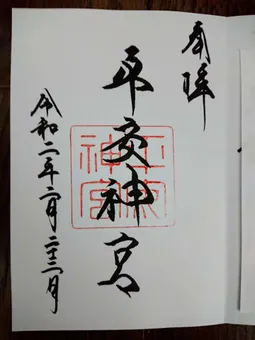 奉拝
平安神宮
平安神宮
令和二年二月二十三日